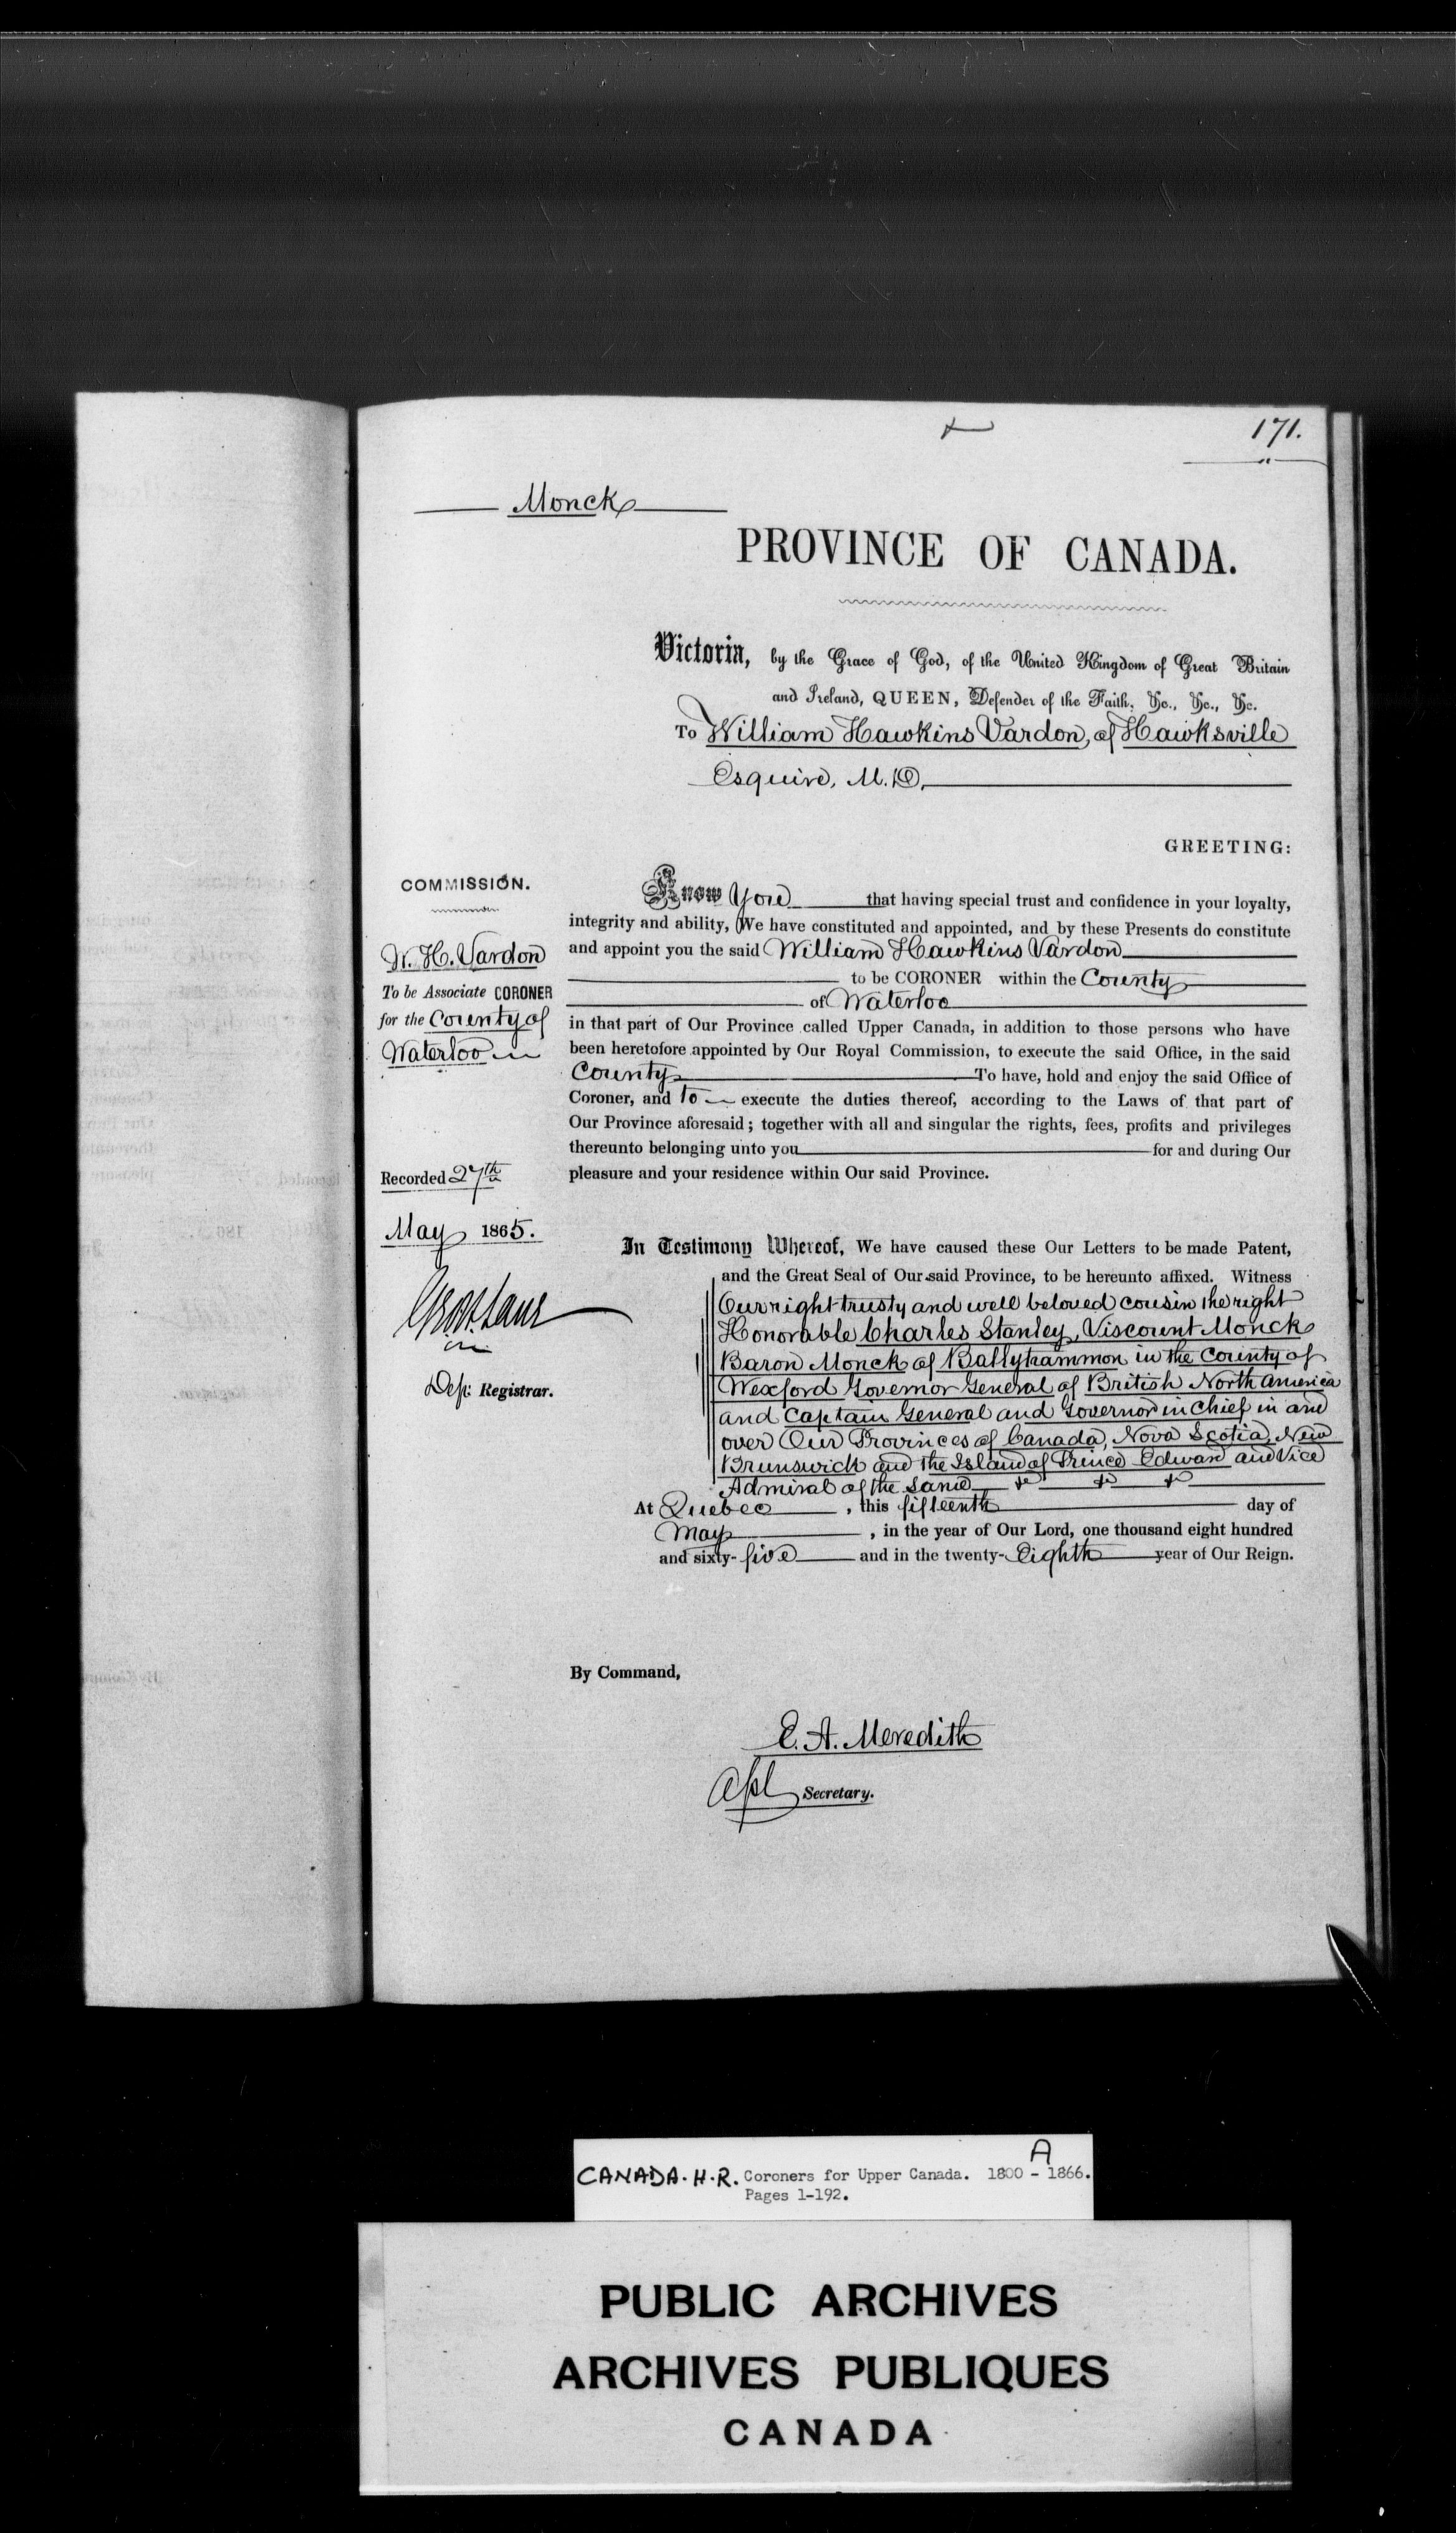 171.
Monck
PROVINCE OF CANADA.
Victoria, by the Grace of God, of the United Kingdom of Great Britain
and Ireland, QUEEN, Defender of the Faith, &c., &c., &c.
To William Hawkins Vardon, of Hawksville
Esquire, M.D.
GREETING:
COMMISSION.
W. H. Vardon
To be Associate CORONER
for the County of
Waterloo
Recorded 27th
May 1865.
Dep: Registrar.
Know You that having special trust and confidence in your loyalty,
integrity and ability, We have constituted and appointed, and by these Presents do constitute
and appoint you the said William Hawkins Vardon
to be CORONER within the County
of Waterloo
in that part of Our Province called Upper Canada, in addition to those persons who have
been heretofore appointed by Our Royal Commission, to execute the said Office, in the said
County To have, hold and enjoy the said Office of
Coroner, and to execute the duties thereof, according to the Laws of that part of
Our Province aforesaid; together with all and singular the rights, fees, profits and privileges
thereunto belonging unto you for and during Our
pleasure and your residence within Our said Province.
In Testimony Whereof, We have caused these Our Letters to be made Patent,
and the Great Seal of Our said Province, to be hereunto affixed. Witness
Our right trusty and well beloved cousin the right
Honorable Charles Stanley, Viscount Monck
Baron Monck of Ballytrammon in the County of
Wexford Governor General of British North America
and Captain General and Governor in Chief in and
over Our Provinces of Canada, Nova Scotia, New
Brunswick and the Island of Prince Edward and Vice
Admiral of the same &c &c &c
At Quebec, this fifteenth day of
May, in the year of Our Lord, one thousand eight hundred
and sixty-five and in the twenty-Eighth year of Our Reign.
By Command,
E. A. Meredith
Secretary.
A
CANADA. H. R. Coroners for Upper Canada. 1800 - 1866.
Pages 1-192.
PUBLIC ARCHIVES
ARCHIVES PUBLIQUES
CANADA